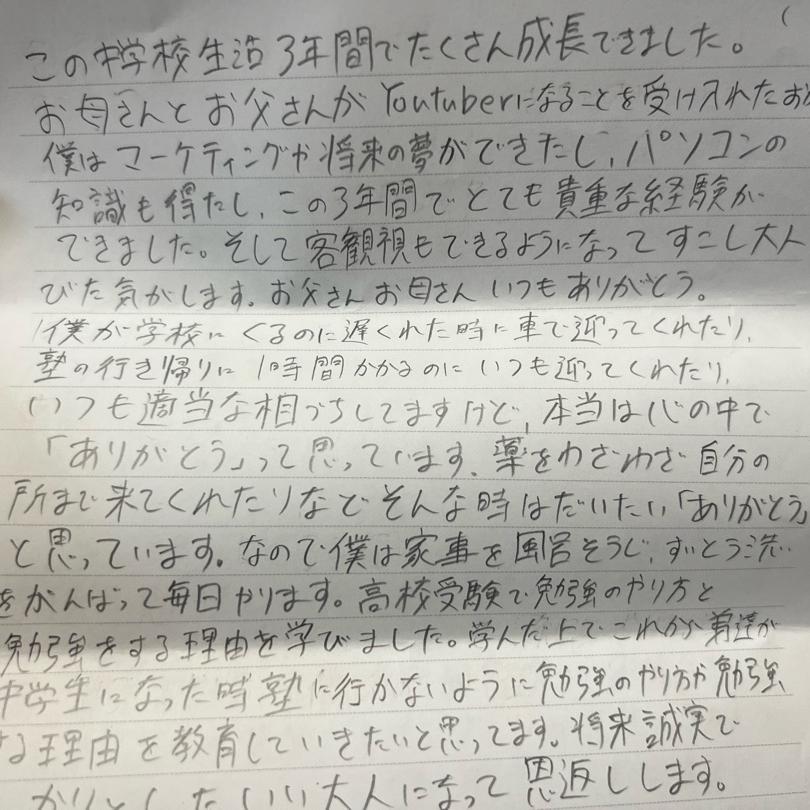 この中学校生活3年間でたくさん成長できました。
お母さんとお父さんがYoutuberになることを受け入れたお
僕はマーケティングや将来の夢ができたし、パソコンの
知識も得たし、この3年間でとても貴重な経験が
できました。そして客観視もできるようになってすこし大人
びた気がします。お父さんお母さんいつもありがとう。
僕が学校にくるのに遅くれた時に車で迎ってくれたり、
塾の行き帰りに1時間かかるのにいつも迎ってくれたり、
いつも適当な相づちしてますけど、本当は心の中で
「ありがとう」って思っています。薬をわざわざ自分の
所まで来てくれたりなどそんな時はだいたい「ありがとう」
と思っています。なので僕は家事を風呂そうじ、
をがんばって毎日やります。高校受験で勉強のやり方と
勉強をする理由を学びました。学んだ上でこれから弟達が
中学生になった時塾に行かないように勉強のやり方や勉強
な理由を教育していきたいと思ってます。将来誠実で
したいい大人になって恩返しします。